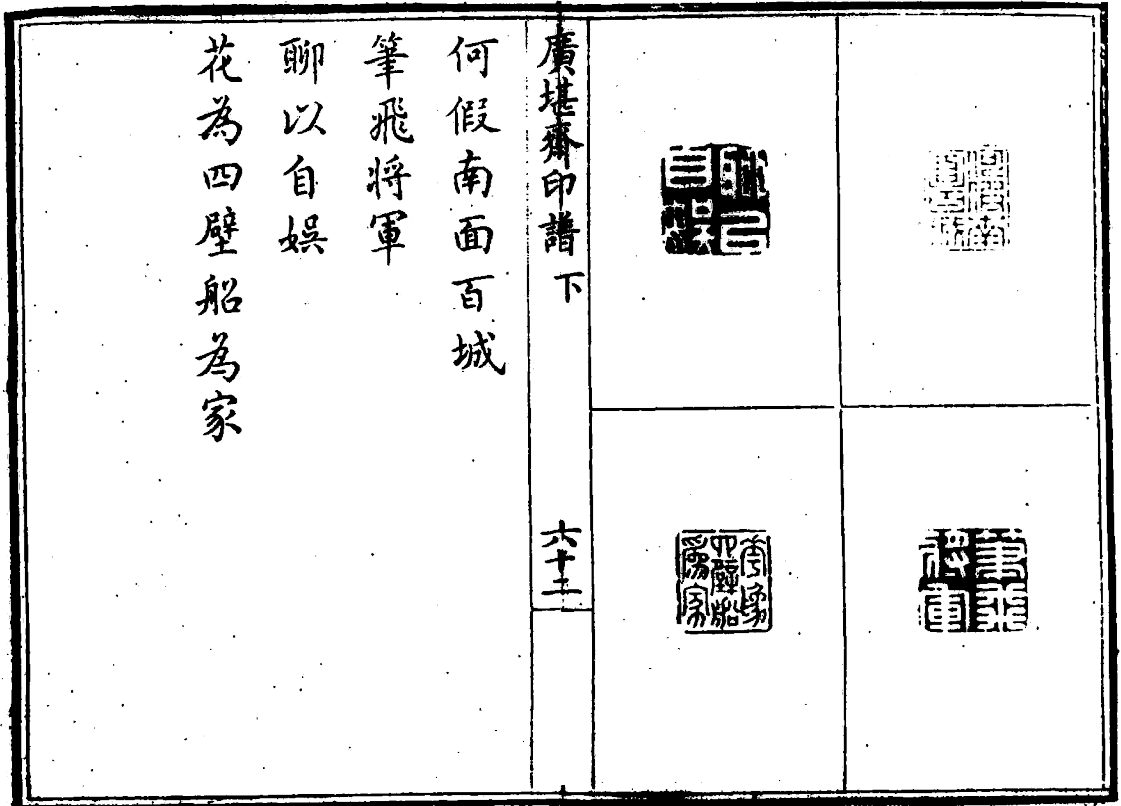 廣堪齋印譜 下
六十二
何假南面百城
筆飛將軍
聊以自娛
花為四壁船為家